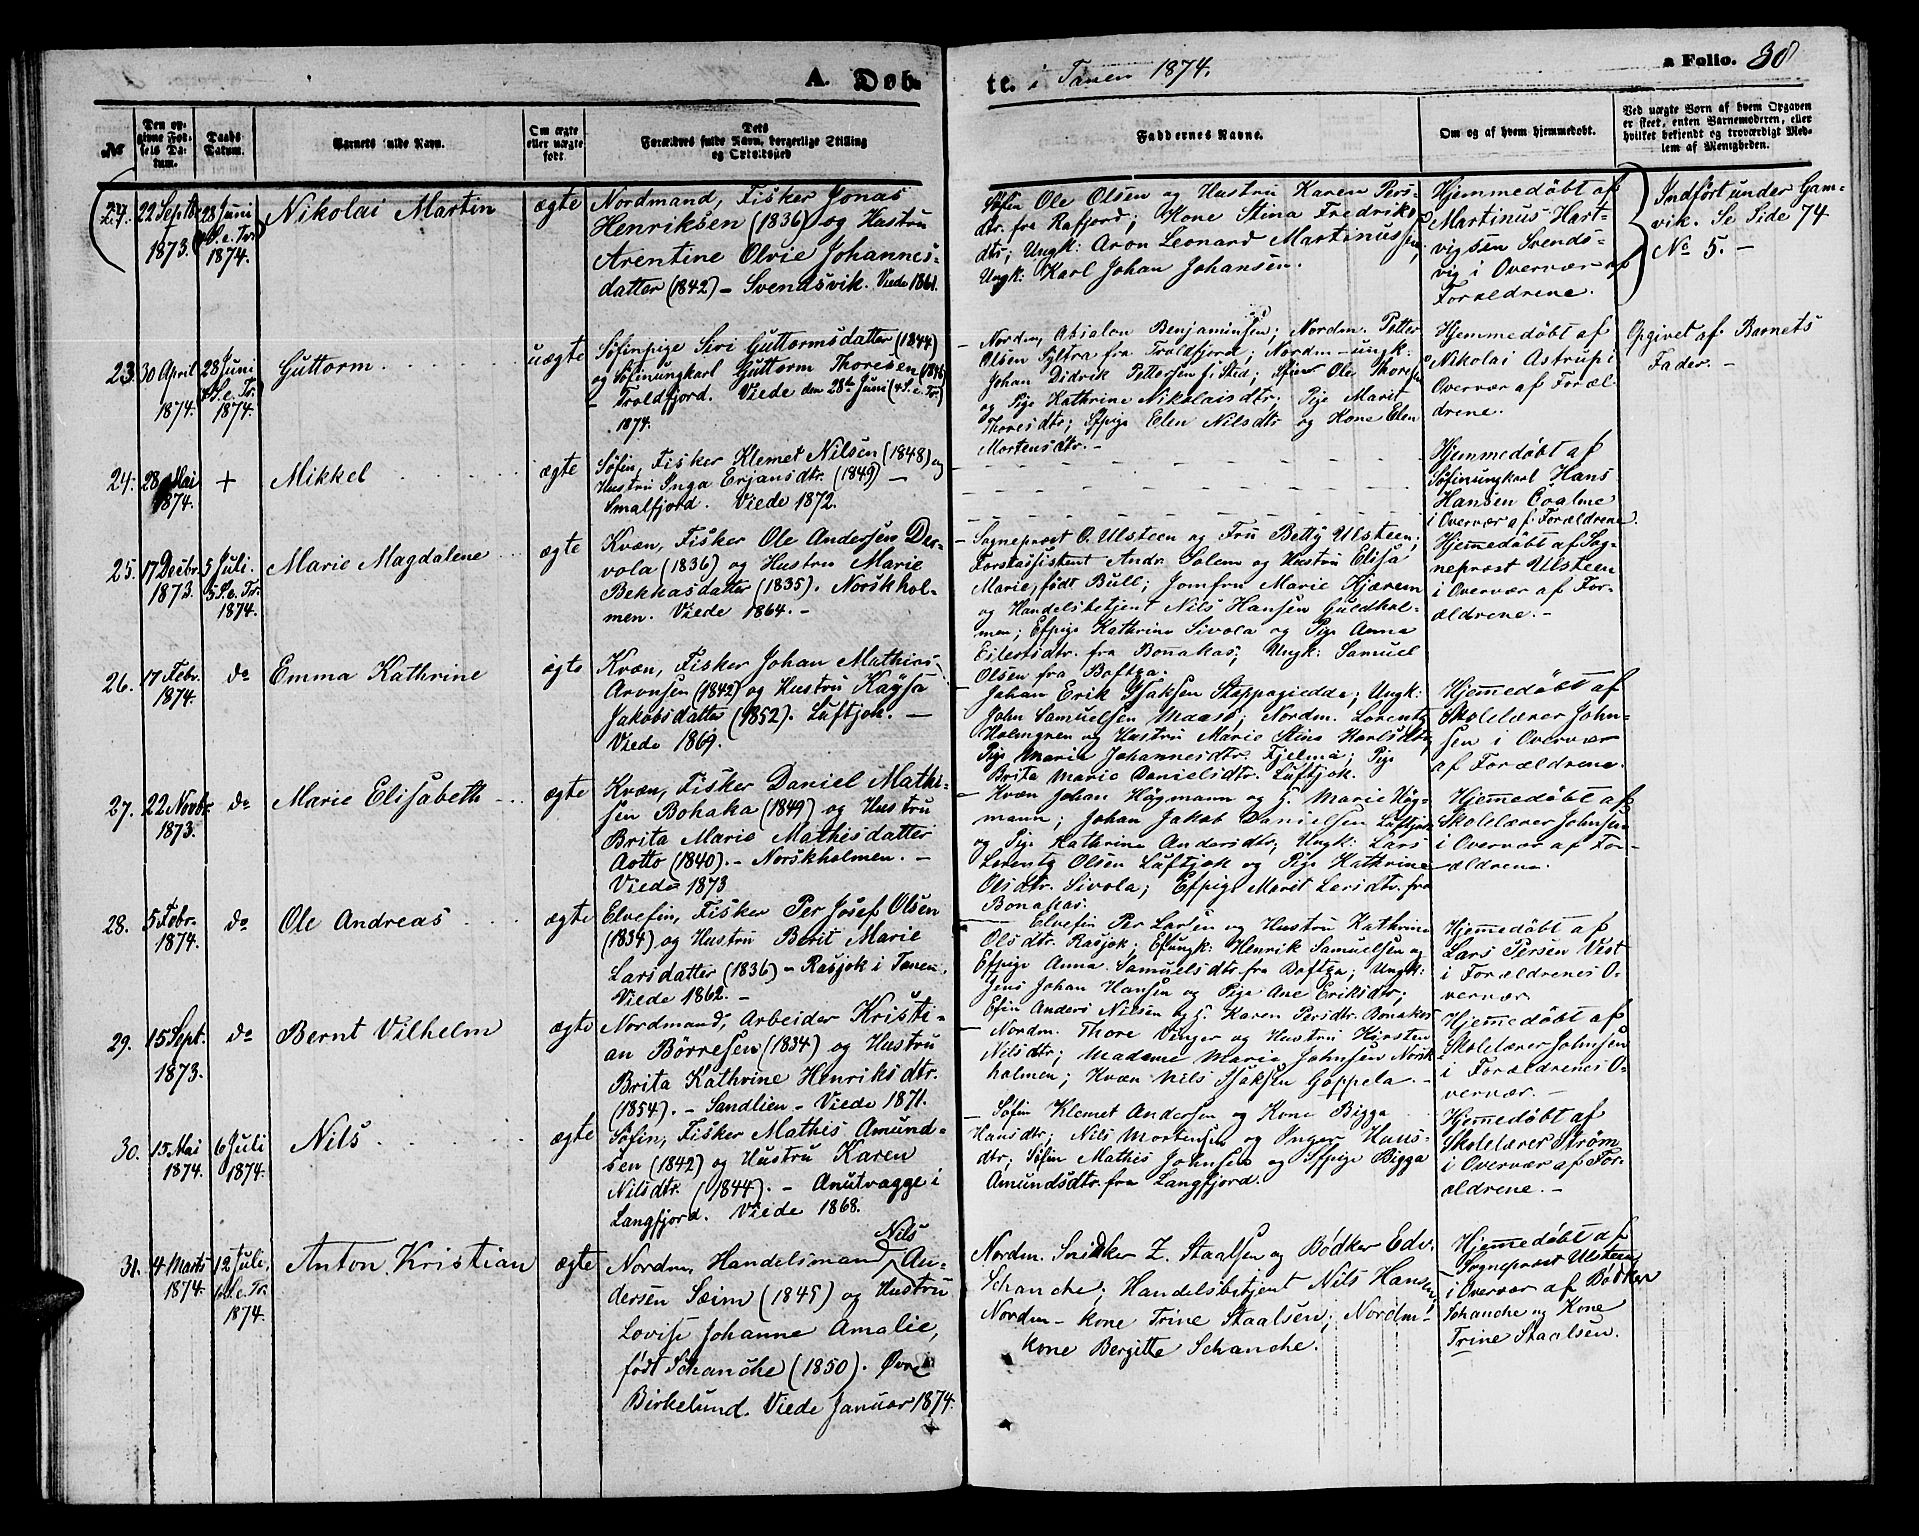 A. Døb-
te. i Tanen 1874.
a Folio. 38
№
Den op-
givne Fød-
sels Da-
tum.
Daabs
Datum.
Barnets fulde Navn.
Om ægte
eller uægte
født.
Dets
Forældres fulde Navn, borgerlige Stilling
og Opholdssted
Faddernes Navne.
Om og af hvem hjemmedøbt.
Ved uægte Børn af hvem Opgaven
er skeet, enten Barnemoderen, eller
hvilket bekjendt og troværdigt Med-
lem af Menigheden.
22 Septbr
1873.
28 Juni
4 S. e. Tr.
1874.
Nikolai Martin
ægte
Nordmand, Fisker Jonas
Henriksen (1836) og Hustru
Arentine Olvie Johannes-
datter (1842) – Svendsvik. Viede 1861.
Søfin Ole Olsen og Hustru Karen Pers-
dtr. fra Rafjord; Kone Stina Fredriks-
dtr; Ungk: Aron Leonard Martinussen;
Ungk: Karl Johan Johansen.
Hjemmedøbt af
Martinus Hart-
vigsen Svends-
vig i Overvær af
Forældrene.
Indført under Gam-
vik. Se Side 74
No 5. –
23.
30 April
1874.
28 Juni
4 S. e. Tr.
1874.
Guttorm
uægte
Søfinpige Siri Guttormsdatter (1844)
og Søfinungkarl Guttorm Thoresen (1846)
– Troldfjord. Viede den 28de Juni (4 S. e. Tr.)
1874.
– Nordm. Absalon Benjaminsen; Nordm. Petter
Olsen Syltra fra Troldfjord; Nordm–ungk:
Johan Didrik Pettersen f: Sted; Søfin Ole Thoresen
og Pige Kathrine Nikolaisdtr; Pige Marit
Thoresdtr; Sfpige Elen Nilsdtr og Kone Elen
Mortensdtr. –
Hjemmedøbt af
Nikolai Astrup i
Overvær af Foræl
drene.
Opgivet af Barnets
Fader. –
24.
28 Mai
1874.
+
Mikkel
ægte
Søfin, Fisker Klemet Nilsen (1848) og
Hustru Inga Erjansdtr. (1849) –
Smalfjord. Viede 1872.
Hjemmedøbt af
Søfinungkarl Hans
Hansen Coalme
i Overvær af Forældrene.
25.
17 Decbr
1873.
5 Juli.
5 S. e. Tr.
1874.
Marie Magdalene
ægte
Kvæn, Fisker Ole Andersen Der-
vola (1836) og Hustru Marie
Bekkasdatter (1835). Norskhol-
men. Viede 1864. –
– Sogneprest O. Ulsteen og Fru Betty Ulsteen;
Forstassistent Andr. Solem og Hustru Elisa
Marie, født Bull; Jomfru Marie Kjærem
og Handelsbetjent Nils Hansen Guldhol-
men; Efpige Kathrina Sivola og Pige Anna
Eilertsdtr. fra Bonakas; Ungk: Samuel
Olsen fra Boftza;
Hjemmedøbt af Sog-
neprest Ulsteen
i Overvær af For-
ældrene. –
26.
17 Febr.
1874.
do
Emma Kathrine
ægte
Kvæn, Fisker Johan Mathias
Aronsen (1842) og Hustru Kaysa
Jakobsdatter (1852). Luftjok. –
Viede 1869.
– Johan Erik Isaksen Stappogiedde; Ungk:
John Samuelsen Maasø; Nordm. Lorentz
Holmgren og Hustru Marie Stina Karlsdtr;
Pige Maria Johannesdtr. Fjelma; Pige
Brita Marie Danielsdtr. Luftjok.
Hjemmedøbt af
Skolelærer John-
sen i Overvær
af Forældrene.
27.
22 Novbr
1873.
do
Marie Elisabeth
ægte
Kvæn, Fisker Daniel Mathi-
sen Bohaka (1849) og Hustru
Brita Marie Mathisdatter
Aotto (1840). – Norskholmen. –
Viede 1873
– Kvæn Johan Högmann og H. Marie Hög-
mann; Johan Jakob Danielsen Luftjok
og Pige Kathrina Andersdtr; Ungk: Lars
Lorentz Olsen Luftjok og Pige Kathrine
Olsdtr. Sivola; Efpige Marit Larsdtr. fra
Bonakas:
Hjemmedøbt af
Skolelærer Johnsen
i Overvær af For-
ældrene.
28.
5 Febr.
1874.
do
Ole Andreas
ægte
Elvefin, Fisker Per Josef Olsen
(1834) og Hustru Berit Marie
Larsdatter (1836) – Rasjok i Tanen.
Viede 1862. –
– Elvefin Per Larsen og Hustru Kathrine
Olsdtr. Rasjok; Efungk: Henrik Samuelsen og
Efpige Anna Samuelsdtr. fra Boftza; Ungk:
Jens Johan Hansen og Pige Ane Eriksdtr;
Efin Anders Nilsen og H. Karen Persdtr. Bonakas
Hjemmedøbt af
Lars Persen Vest
i Forældrenes O-
vervær.
29.
15 Sept.
1873.
do
Bernt Vilhelm
ægte
Nordmand, Arbeider Kristi-
an Börresen (1834) og Hustru
Brita Kathrine Henriksdtr.
(1854). – Sandlien – Viede 1871.
– Nordm. Thore Vinger og Hustru Kirsten
Nilsdtr; Madame Marie Johnsen Norsk-
holmen; Kvæn Nils Isaksen Goppela. –
Hjemmedøbt af
Skolelærer Johnsen
i Forældrenes O-
vervær. –
30.
15 Mai
1874.
6 Juli
1874.
Nils
ægte
Søfin, Fisker Mathis Amund-
sen (1842) og Hustru Karen
Nilsdtr. (1844). – Anutvagge i
Langfjord. Viede 1868.
– Søfin Klemet Andersen og Kone Bigga
Hansdtr; Nils Mortensen og Inger Hans-
dtr; Søfin Mathis Johnsen og Sfpige Bigga
Amundsdtr. fra Langfjord.
Hjemmedøbt af
Skolelærer Strøm
i Overvær af For-
ældrene. –
31.
4 Marts
1874.
12 Juli,
6 S. e. Tr.
1874.
Anton Kristian
ægte
Nils
Nordm, Handelsmand An-
dersen Sæim (1845) og Hustru
Lovise Johanne Amalie,
født Schanche (1850). Øvre
Birkelund. Viede Januar 1874.
Nordm. Snidker Z. Staalsen og Bødker Edv.
Schanche; Handelsbetjent Nils Hansen;
Nordm – kone Trine Staalsen; Nordm-
kone Bergitte Schanche.
Hjemmedøbt af
Sogneprest Ulsteen
i Overvær af Bødker
Schanche og Kone
Trine Staalsen.